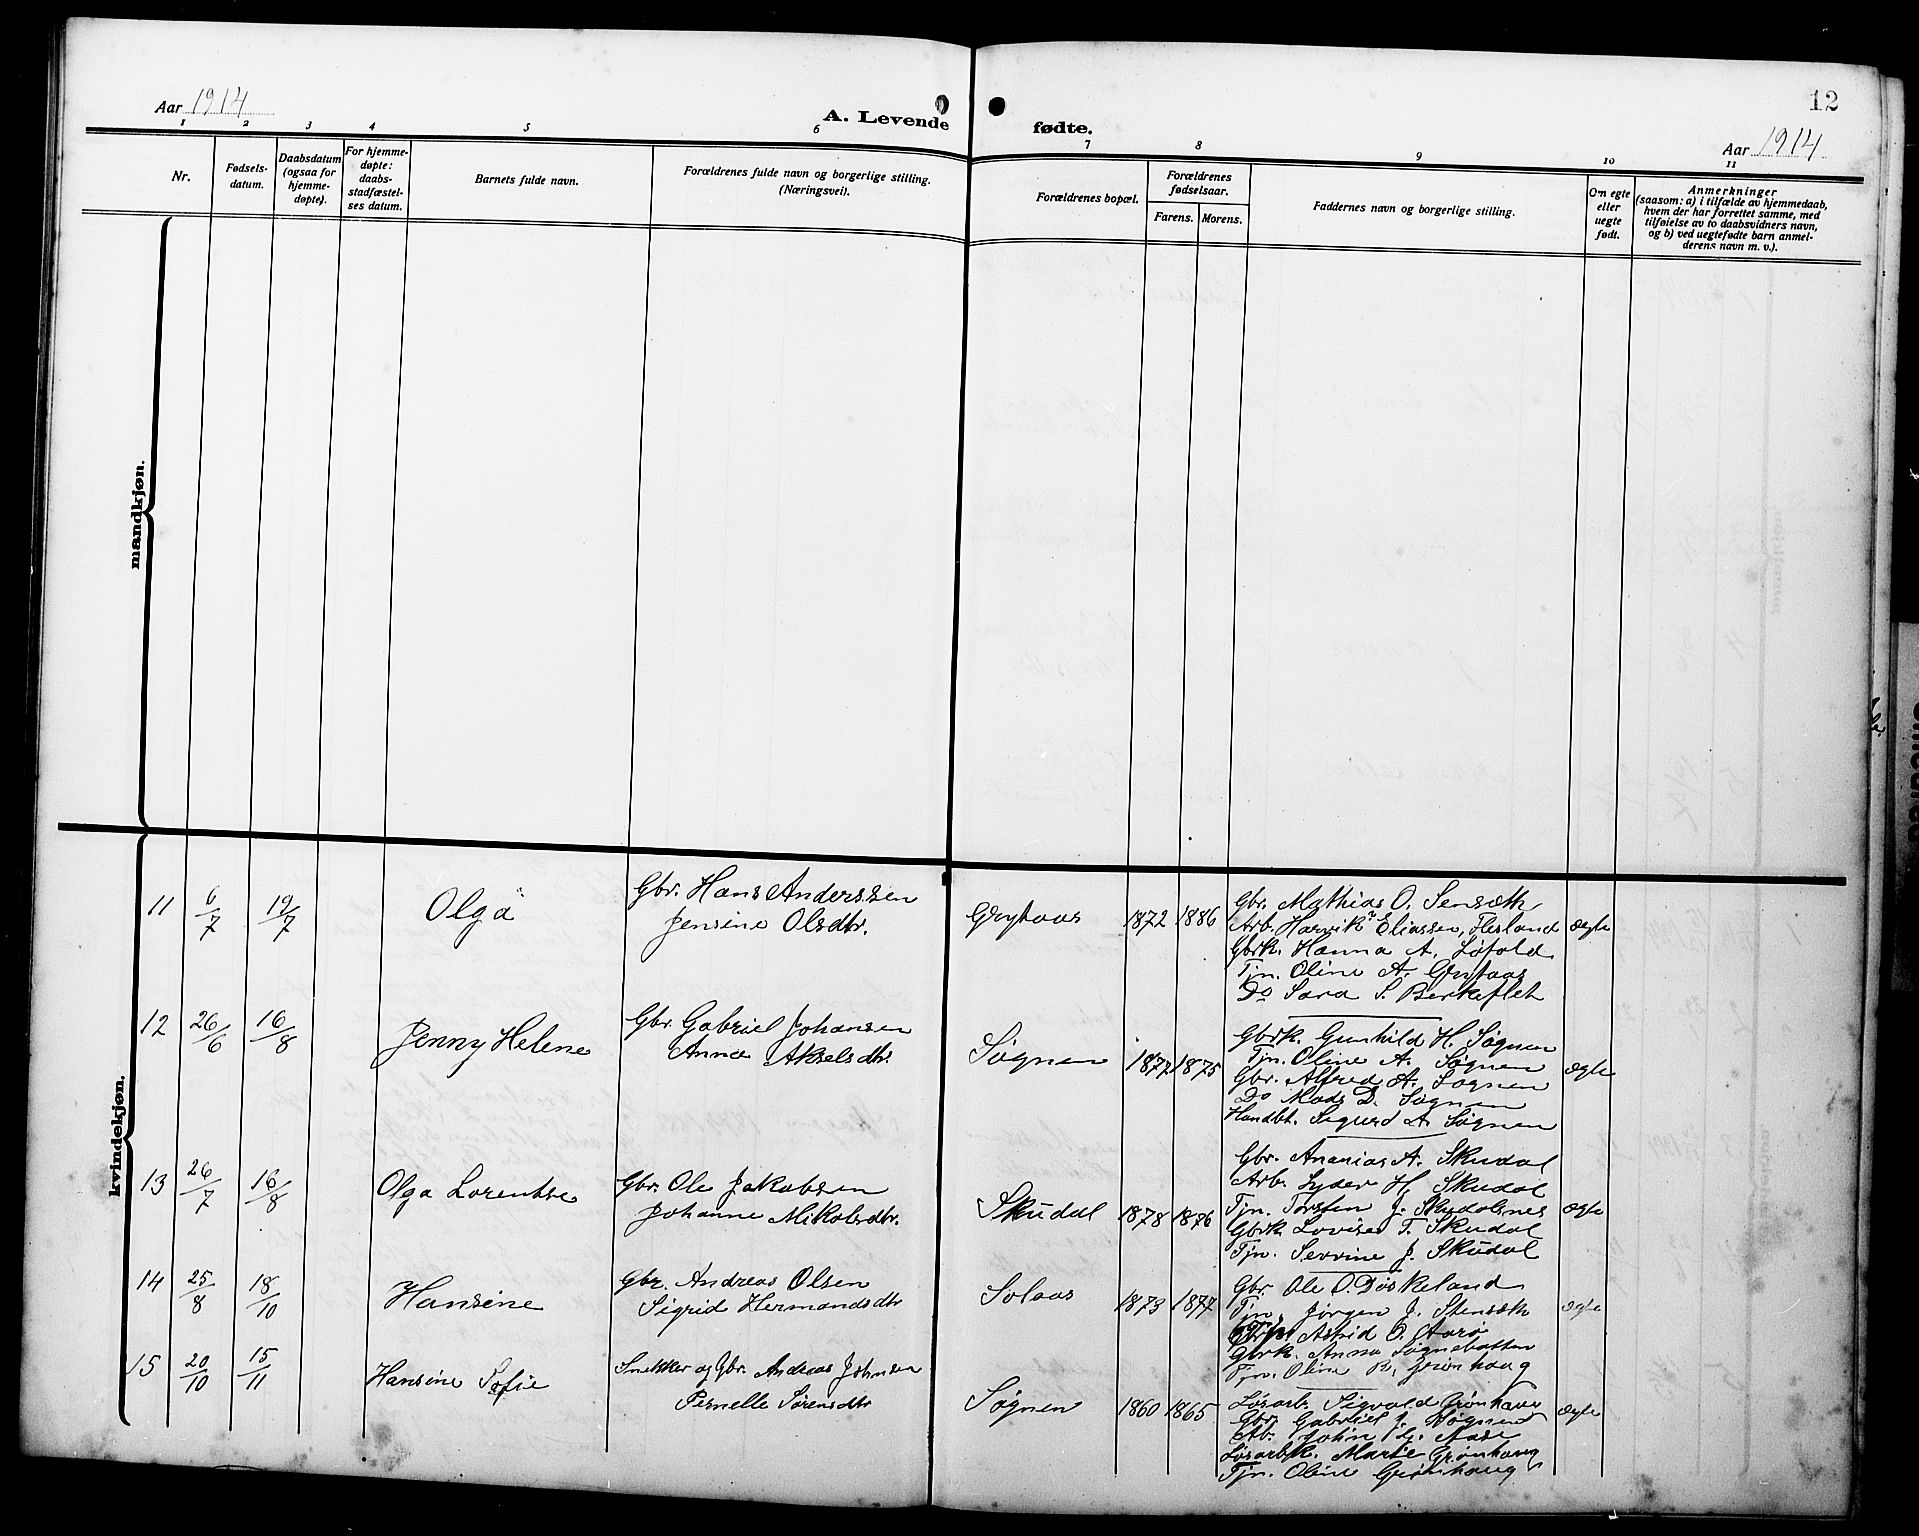 Aar 1914
A. Levende
fødte.
12
Aar 1914
1 2 3 4 5 6 7 8 9 10 11
Nr.
Fødsels-
datum.
Daabsdatum
(ogsaa for
hjemme-
døpte).
For hjemme-
døpte:
daabs-
stadfæstel-
ses datum.
Barnets fulde navn.
Forældrenes fulde navn og borgerlige stilling.
(Næringsvei).
Forældrenes bopæl.
Forældrenes
fødselsaar.
Farens. Morens.
Faddernes navn og borgerlige stilling.
Om egte
eller
uegte
født.
Anmerkninger
(saasom: a) i tilfælde av hjemmedaab,
hvem der har forrettet samme, med
tilføielse av to daabsvidners navn,
og b) ved uegtefødte barn anmel-
derens navn m. v.).
mandkjøn.
kvindekjøn.
11 6/7 19/7 Olga
Gbr. Hans Anderssen
Jensine Olsdtr.
Grytaas 1872 1886
Gbr. Mathias O. Sensæth
Arb. Harvik Eliassen, Flesland
Gbrk. Hanna A. Løfold
Tjn. Oline A. Grytaas
Do Sara S. Berkeflet
ægte
12 26/6 16/8 Jenny Helene
Gbr. Gabriel Johansen
Anna Akselsdtr.
Søgnen 1877 1875
Gbrk. Gunhild H. Søgnen
Tjn. Oline A. Søgnen
Gbr. Alfred A. Søgnen
Do Mads D. Søgnen
Handbt. Sigurd A. Søgnen
ægte
13 26/7 16/8 Olga Lorentse
Gbr. Ole Jakobsen
Johanne Mikalsdtr.
Skudal 1878 1876
Gbr. Ananias A. Skudal
Arb. Lyder H. Skudal
Tjn. Torsten J. Skudalsnes
Gbrk. Lovise T. Skudal
Tjn. Sevrine J. Skudal
ægte
14 25/8 18/10 Hansine
Gbr. Andreas Olsen
Sigrid Hermandsdtr
Solaas 1873 1877
Gbr. Ole O. Døskeland
Tjn. Jørgen J. Stensæth
Tjn. Astrid O. Aarø
Gbrk. Anna Søgnebotten
Tjn. Oline R. Grønhaug
ægte
15 20/10 15/11 Hansine Sofie
Snekker og Gbr. Andreas Johnsen
Pernelle Sørensdtr
Søgnen 1860 1865
Løsarb. Sigvald Grønhaug
Gbr. Gabriel J. Søgnen
Arb. John L. Aase
Løsarbk. Marie Grønhaug
Tjn. Oline Grønhaug
ægte